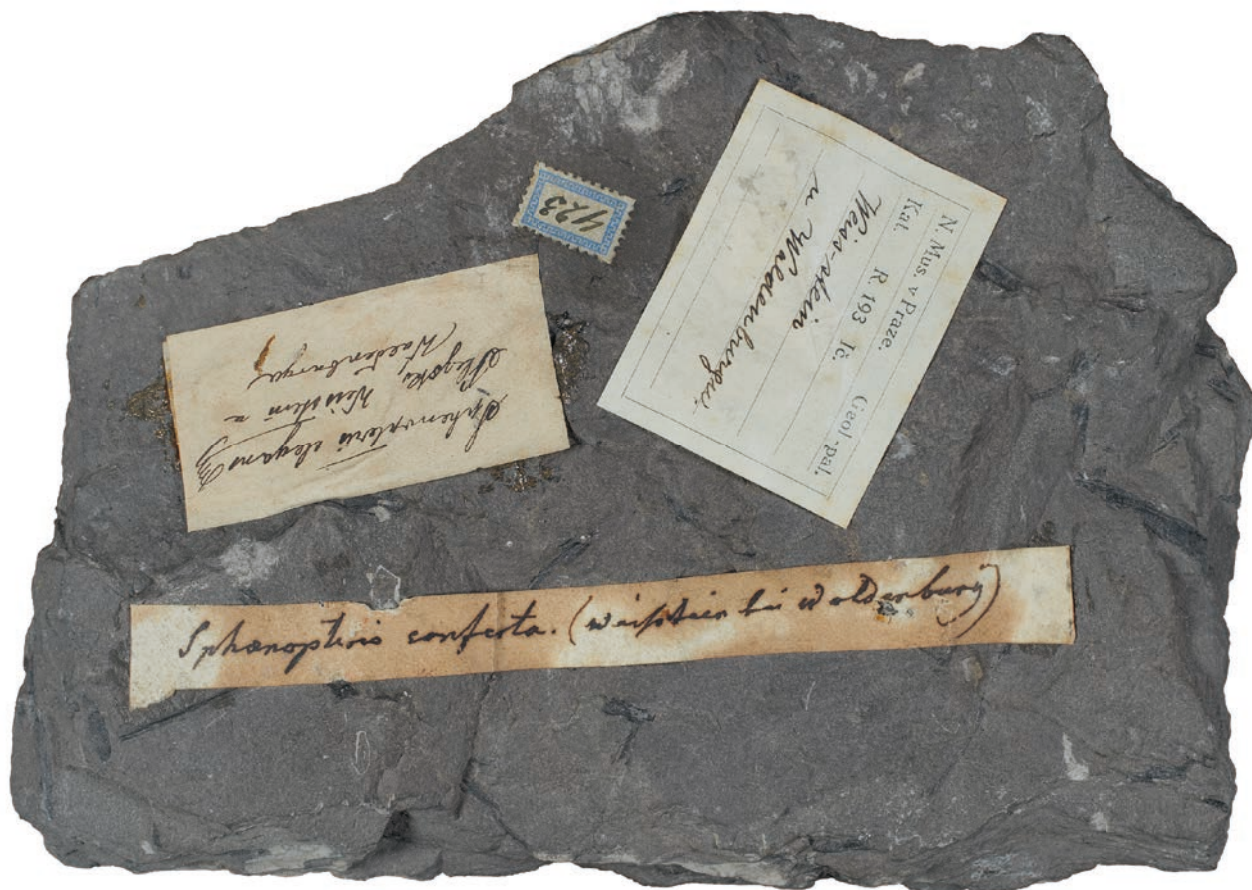 423
N. Mus. v Praze. Geol.-pal.
Kat. R. 193 Ič.
Weiss-stein
u Waldenburgu,
Sphenopteris elegans
Slezsko, Weisstein u
Waldenburgu
Sphænopteris conferta. (Weißstein bei Waldenburg)